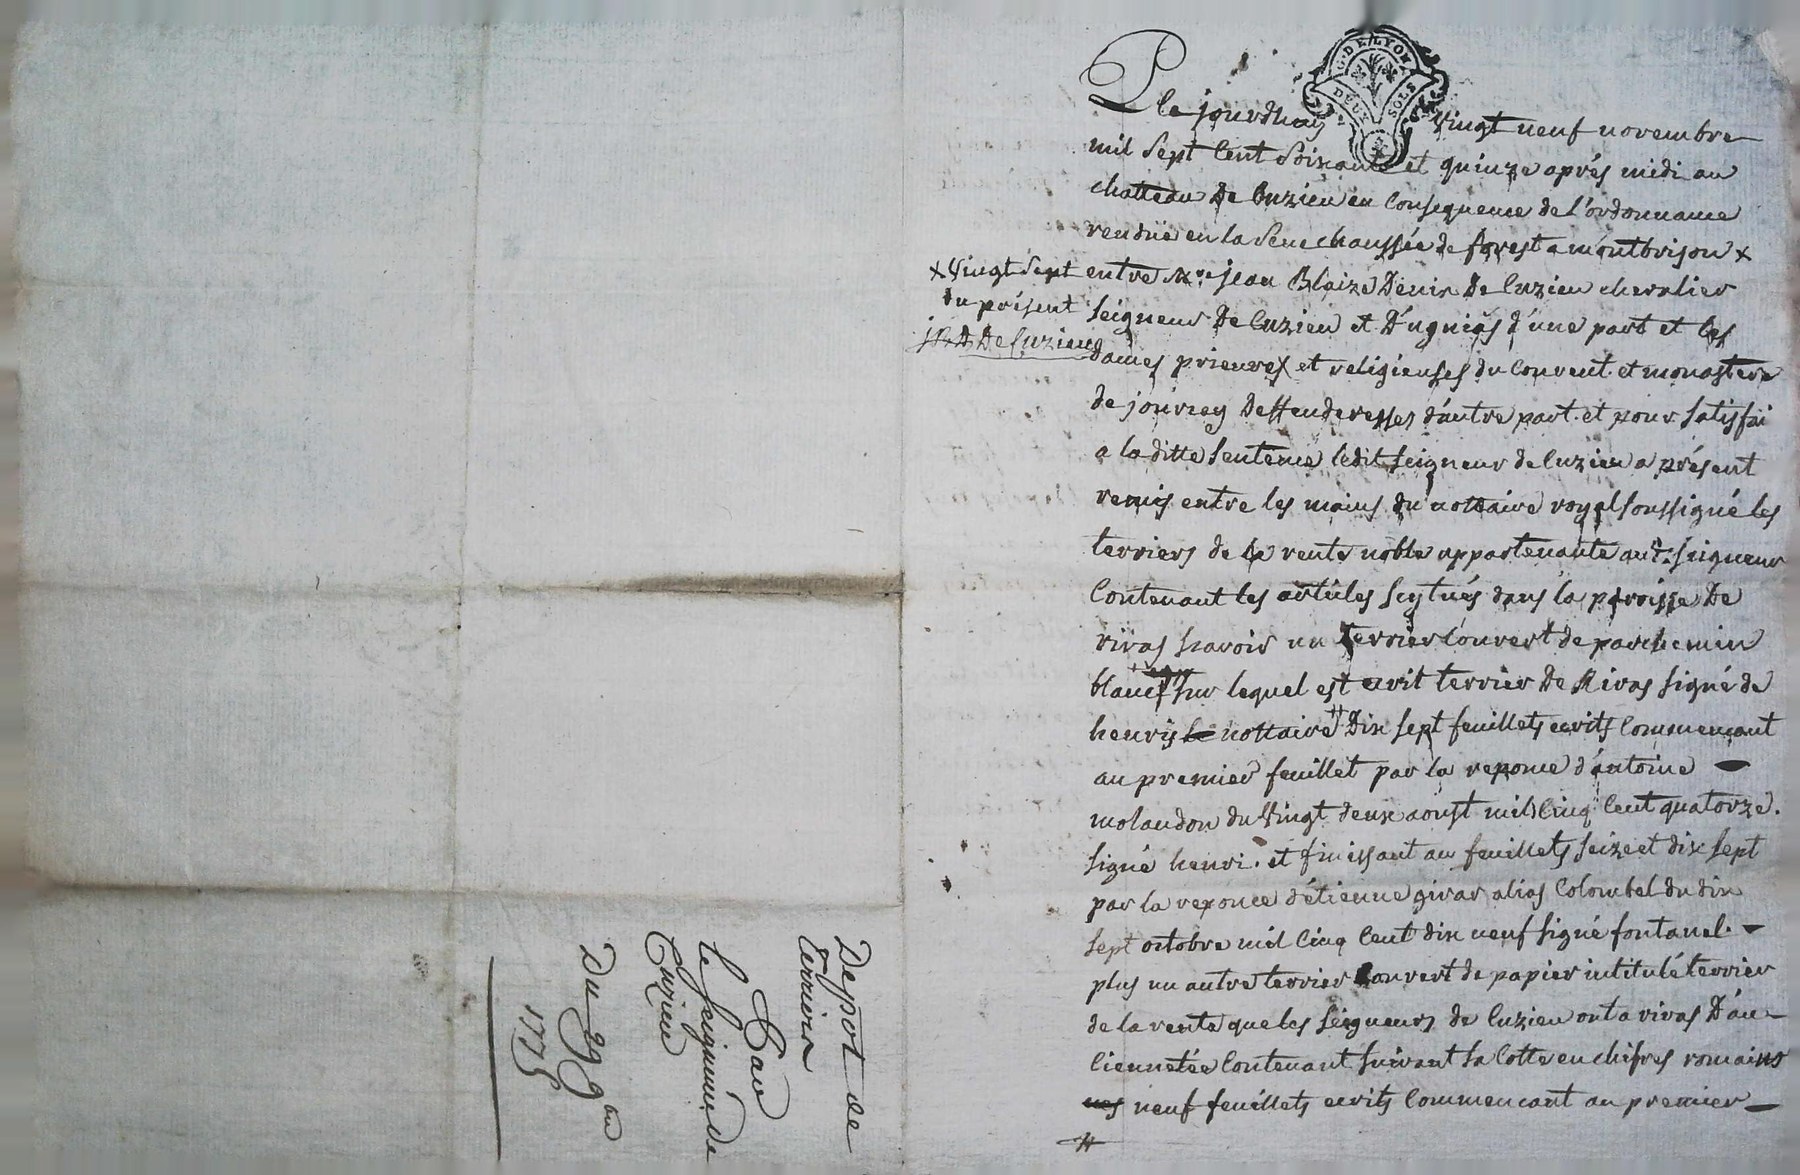 G. DE LYON
DEUX SOLS
Ce jourdhuy vingt neuf novembre
mil sept Cent Soixante et quinze aprés midi au
chatteau De Cuzieu en Consequence de l'ordonnance
rendüe en la Senechaussée de forest a montbrison x
x Vingt Sept
du présent
entre Mre. jean Blaize Denis De Cuzieu chevalier
Seigneur De Cuzieu et D'ugnias d'une part et les
dames prieures et religieuses du Couvent et monastere
de jourcey Deffenderesses d'autre part. et pour satisfai
a la ditte Sentence ledit Seigneur de Cuzieu a présent
remis entre les mains du nottaire royal soussigné les
terriers de la rente noble appartenante aud. Seigneur
Contenant les articles scytués dans la paroisse De
rivas scavoir un terrier Couvert de parchemin
blanc sur lequel est ecrit terrier De Rivas signé de
henris nottaire Dix sept feuillets ecrits Commencant
au premier feuillet par la reponce d'antoine
molandon du Vingt deux aoust mil Cinq Cent quatorze.
signé henri. et finissant au feuillets seize et dix sept
par la reponce d'étienne girar alias Colombel du dix
sept octobre mil Cinq Cent dix neuf signé fontanel.
plus un autre terrier Couvert de papier intitulé terrier
de la rente que les seigneurs de Cuzieu ont a rivas D'an-
Ciennetée Contenant suivant la Cotte en chifres romains
neuf feuillets ecrits Commencant au premier
Depot de
terriers
Par
le seigneur de
Cuzieu
Du 29 9bre
1775